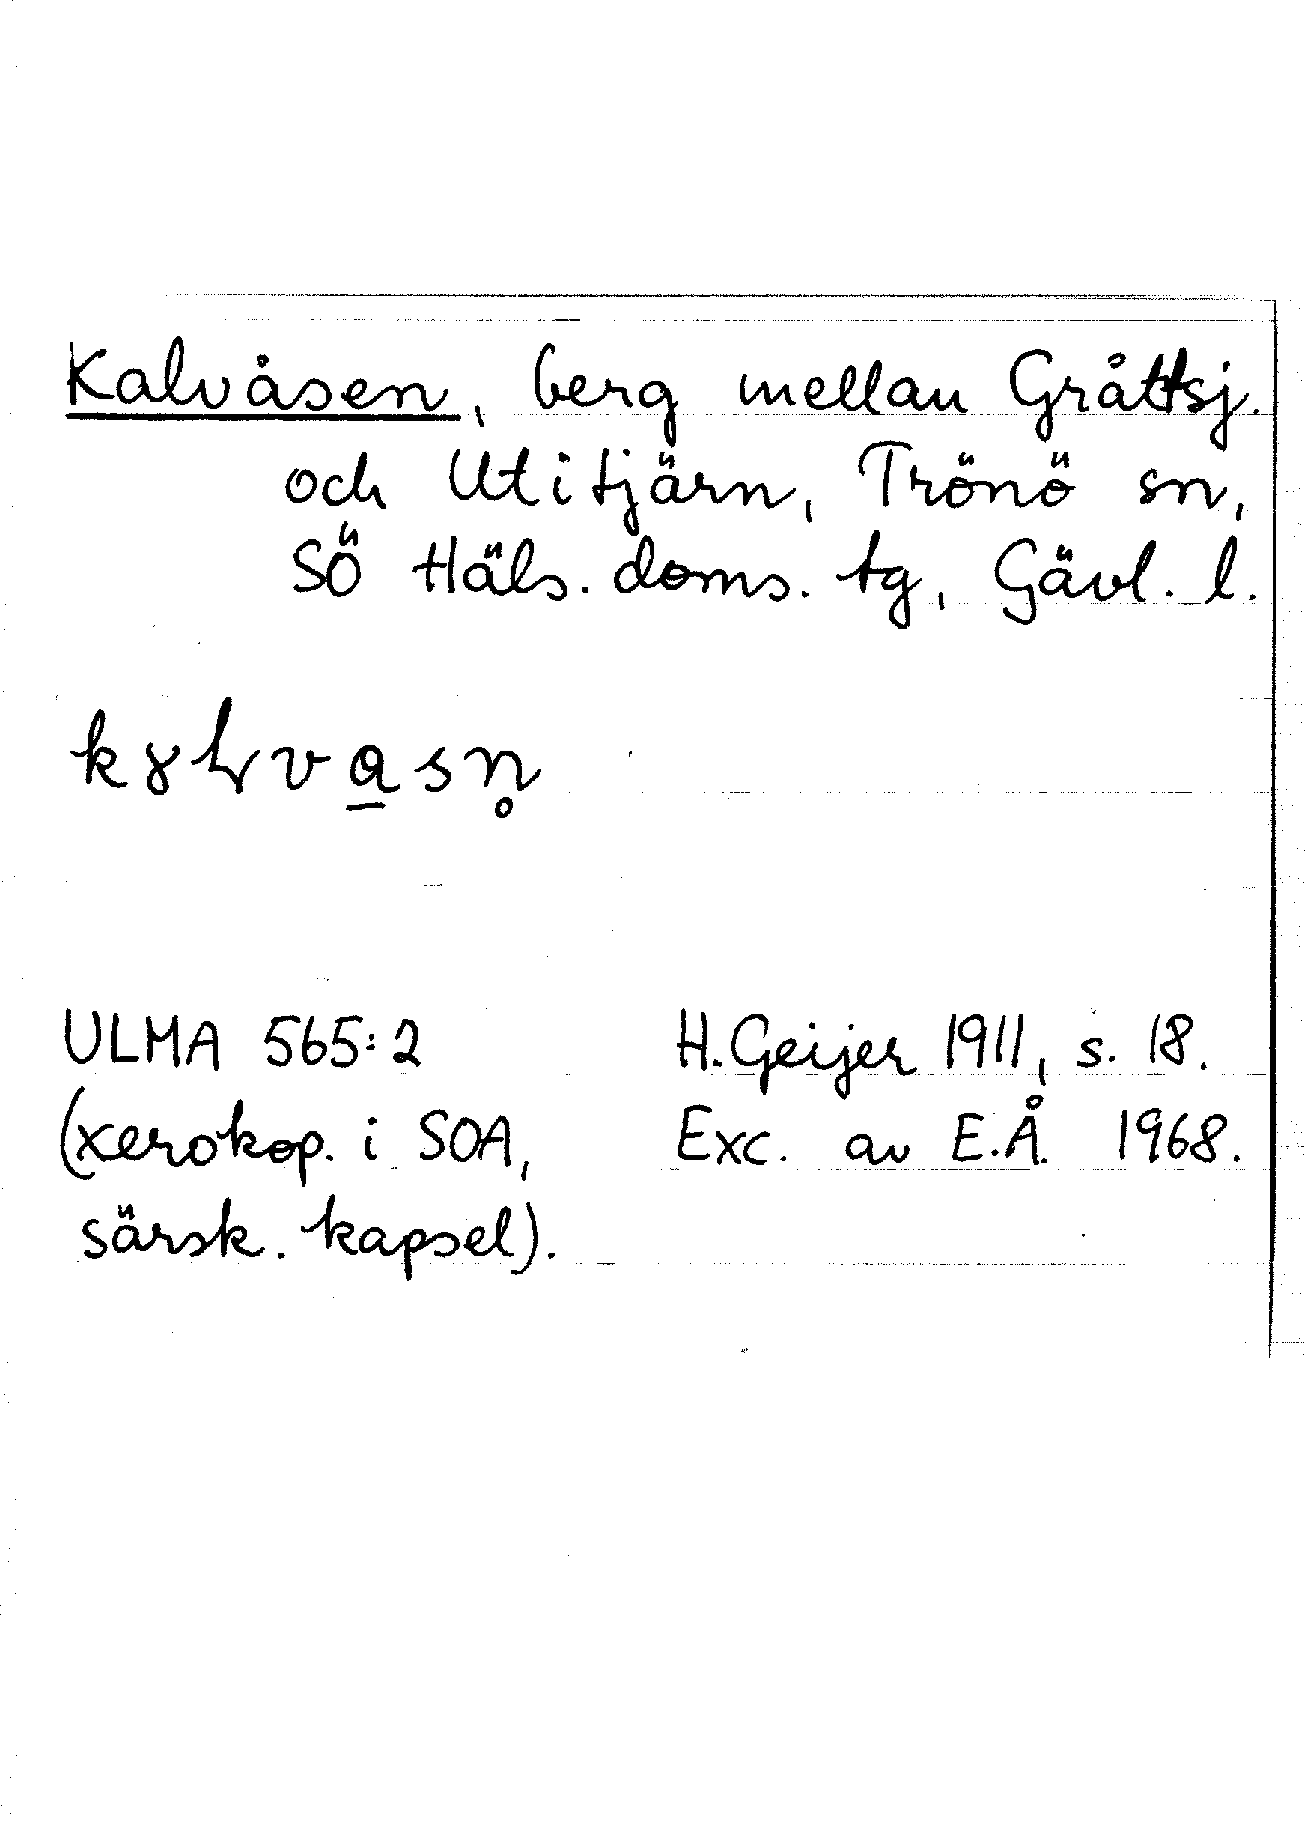 Kalvåsen, berg mellan Gråttsj.
och Utitjärn, Trönö sn,
SÖ Häls. doms. tg, Gävl. l.
ULMA 565:2
(xerokop. i SOA,
särsk. kapsel).
H. Geijer 1911, s. 18.
Exc. av E.Å. 1968.